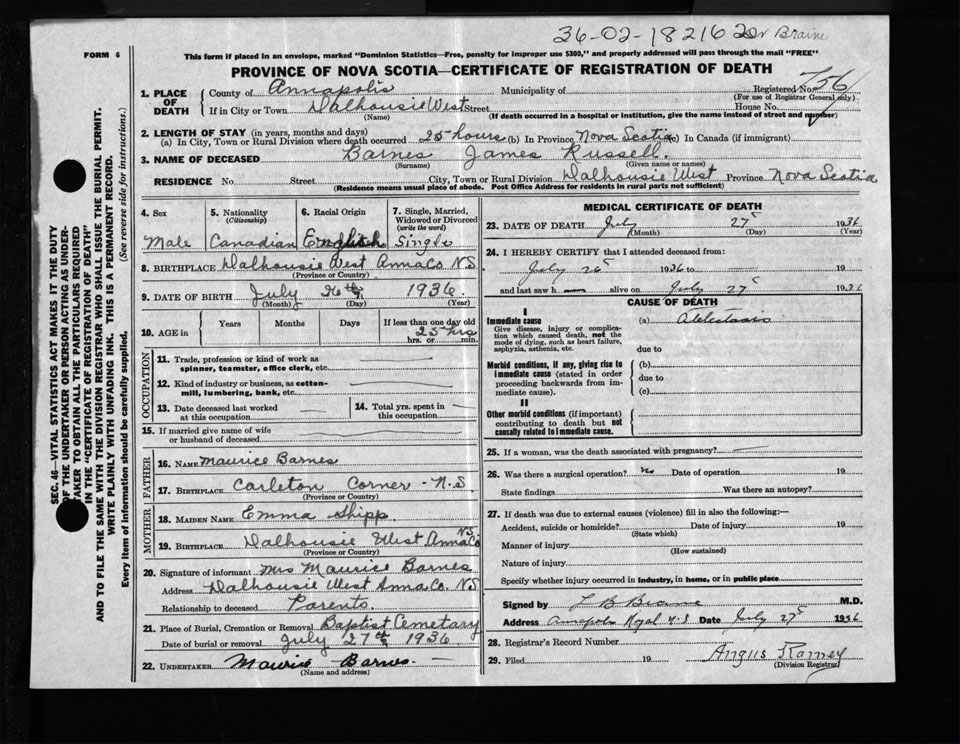 36-02-18216 Dr Braine
FORM 6
This form if placed in an envelope, marked "Dominion Statistics—Free, penalty for improper use $300," and properly addressed will pass through the mail "FREE"
PROVINCE OF NOVA SCOTIA—CERTIFICATE OF REGISTRATION OF DEATH
1. PLACE OF DEATH
County of Annapolis Municipality of Registered No. 756
(For use of Registrar General only)
If in City or Town Dalhousie West Street House No.
(Name) (If death occurred in a hospital or institution, give the name instead of street and number)
2. LENGTH OF STAY (in years, months and days)
(a) In City, Town or Rural Division where death occurred 25 hours (b) In Province Nova Scotia (c) In Canada (if immigrant)
3. NAME OF DECEASED Barnes James Russell.
(Surname) (Given name or names)
RESIDENCE No Street City, Town or Rural Division Dalhousie West Province Nova Scotia
(Residence means usual place of abode. Post Office Address for residents in rural parts not sufficient)
SEC. 46—VITAL STATISTICS ACT MAKES IT THE DUTY
OF THE UNDERTAKER OR PERSON ACTING AS UNDER-
TAKER TO OBTAIN ALL THE PARTICULARS REQUIRED
IN THE "CERTIFICATE OF REGISTRATION OF DEATH"
AND TO FILE THE SAME WITH THE DIVISION REGISTRAR WHO SHALL ISSUE THE BURIAL PERMIT.
WRITE PLAINLY WITH UNFADING INK. THIS IS A PERMANENT RECORD.
Every item of information should be carefully supplied. (See reverse side for instructions.)
4. Sex
Male
5. Nationality
(Citizenship)
Canadian
6. Racial Origin
English
7. Single, Married, Widowed or Divorced
(write the word)
Single
8. BIRTHPLACE Dalhousie West Anna Co N.S
(Province or Country)
9. DATE OF BIRTH July 26th 1936.
(Month) (Day) (Year)
10. AGE in Years Months Days If less than one day old
25 hrs
hrs. or min.
OCCUPATION
11. Trade, profession or kind of work as
spinner, teamster, office clerk, etc.
12. Kind of industry or business, as cotton-
mill, lumbering, bank, etc.
13. Date deceased last worked
at this occupation
14. Total yrs. spent in
this occupation
15. If married give name of wife
or husband of deceased
FATHER
16. NAME Maurice Barnes
17. BIRTHPLACE Carleton Corner - N.S
(Province or Country)
MOTHER
18. MAIDEN NAME Emma Shipp.
19. BIRTHPLACE Dalhousie West Anna Co N.S
(Province or Country)
20. Signature of informant Mrs Maurice Barnes
Address Dalhousie West Anna Co. N.S
Relationship to deceased Parents.
21. Place of Burial, Cremation or Removal Baptist Cemetary
Date of burial or removal July 27th 1936
22. UNDERTAKER Maurice Barnes.
(Name and address)
MEDICAL CERTIFICATE OF DEATH
23. DATE OF DEATH July 27 1936
(Month) (Day) (Year)
24. I HEREBY CERTIFY that I attended deceased from:
July 26 1936 to 19
and last saw h alive on July 27 1936
CAUSE OF DEATH
I
Immediate cause
Give disease, injury or complica-
tion which caused death, not the
mode of dying, such as heart failure,
asphyxia, asthenia, etc.
(a)
due to
Morbid conditions, if any, giving rise to
immediate cause (stated in order
proceeding backwards from im-
mediate cause).
(b)
due to
(c)
II
Other morbid conditions (if important)
contributing to death but not
causally related to immediate cause.
25. If a woman, was the death associated with pregnancy?
26. Was there a surgical operation? No Date of operation 19
State findings Was there an autopsy?
27. If death was due to external causes (violence) fill in also the following:—
Accident, suicide or homicide? Date of injury 19
(State which)
Manner of injury
(How sustained)
Nature of injury
Specify whether injury occurred in industry, in home, or in public place
Signed by L B Braine M.D.
Address Annapolis Royal N.S Date July 27 1936
28. Registrar's Record Number
29. Filed 19 Angus Ramey
(Division Registrar)